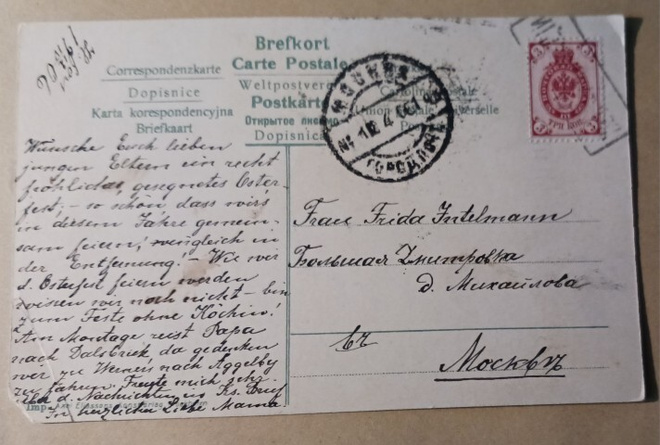 Brefkort
Carte Postale
Correspondenzkarte
Weltpostverein
Dopisnice
Postkarte
Karta korespondencyjna
Открытое письмо
Briefkaart
Dopisnica
МОСКВА
4
три коп.
Wünsche Euch lieben
jungen Eltern ein recht
fröhliches, gesegnetes Oster-
fest. – so schön dass wir's
in diesem Jahre gemein-
sam feiern, wenngleich in
der Entfernung! – Wie wir
d. Osterfest feiern werden
wissen wir noch nicht – bin
zum Feste ohne Köchin!
Am Montage reist Papa
nach Dalsbruk, da gedenken
wir zu nach Aggelby
zu fahren. Freute mich sehr
über d. Nachrichten
In herzlicher Liebe Mama.
Frau Frida Intelmann
Большая Дмитровка
д. Михайлова
въ
Москвѣ
Imp.